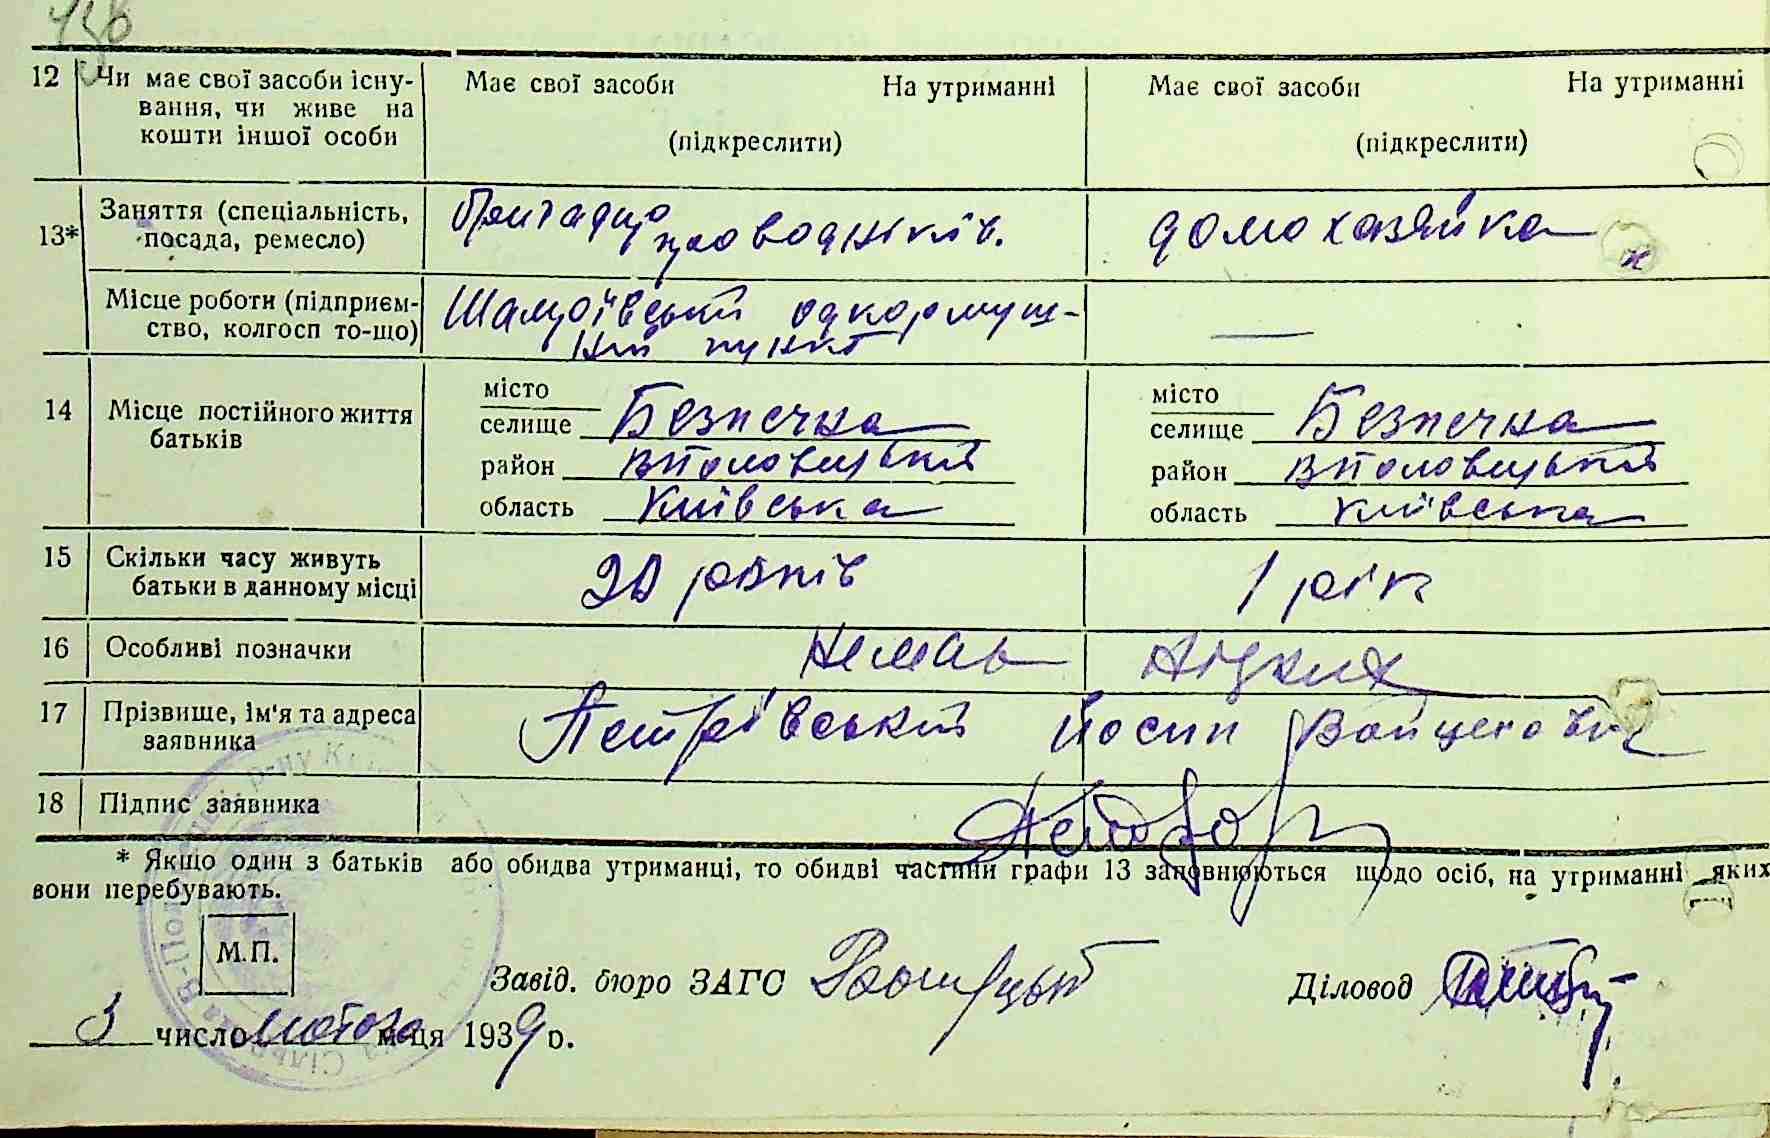 12 Чи має свої засоби існу- Має свої засоби На утриманні Має свої засоби На утриманні
вання, чи живе на
кошти іншої особи (підкреслити) (підкреслити)
13* Заняття (спеціальність, домохазяйка
посада, ремесло)
Місце роботи (підприєм-
ство, колгосп то-що) —
ний пункт
14 Місце постійного життя батьків
місто місто
селище Безпечна селище Безпечна
район Вполовецький район Вполовецький
область Київська область Київська
15 Скільки часу живуть 20 років 1 рік
батьки в данному місці
16 Особливі позначки Немає ніяких
17 Прізвище, ім'я та адреса Петрівський Йосип
заявника
18 Підпис заявника
* Якщо один з батьків або обидва утриманці, то обидві частини графи 13 заповнюються щодо осіб, на утриманні яких
вони перебувають.
М.П.
Завід. бюро ЗАГС Діловод
3 число лютого м-ця 1939 р.